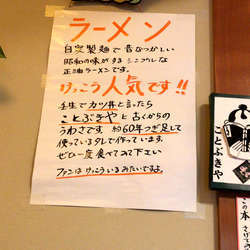 ラーメン
自家製麺で昔なつかしい
昭和の味がするシンプルな
正油ラーメンです。
けっこう人気です!!
壬生でカツ丼と言ったら
ことぶきやと古くからの
うわさです 約60年つぎ足して
使っているタレで作っています。
ぜひ一度食べてみて下さい
ファンはけっこういるみたいですよ。
ことぶきや